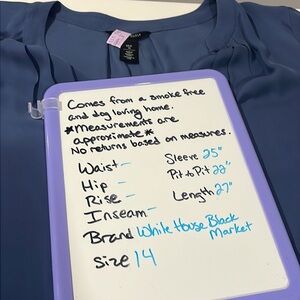 Comes from a smoke free
and dog loving home.
*Measurements are
approximate*
No returns based on measures.
Waist -
Hip -
Rise -
Inseam -
Sleeve 25"
Pit to Pit 22"
Length 27"
Brand White House Black
Market
Size 14